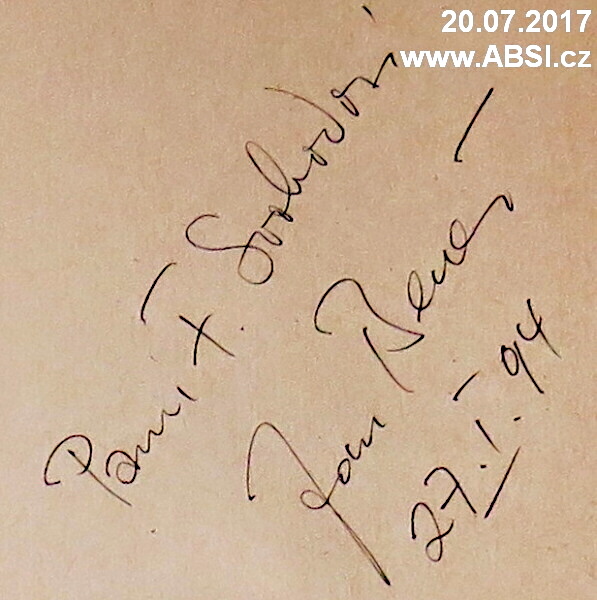 20.07.2017
www.ABSI.cz
Panu F. Svobodovi
Jan Beneš
27. I. 94